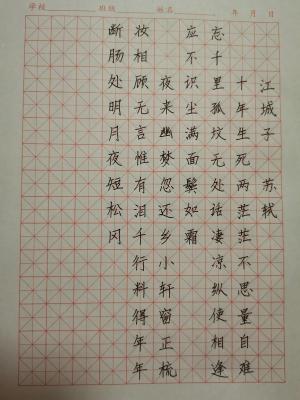 学校 班级 姓名 年 月 日
江城子 苏轼
十年生死两茫茫不思量自难
忘千里孤坟无处话凄凉纵使相逢
应不识尘满面鬓如霜
夜来幽梦忽还乡小轩窗正梳
妆相顾无言惟有泪千行料得年年
断肠处明月夜短松冈